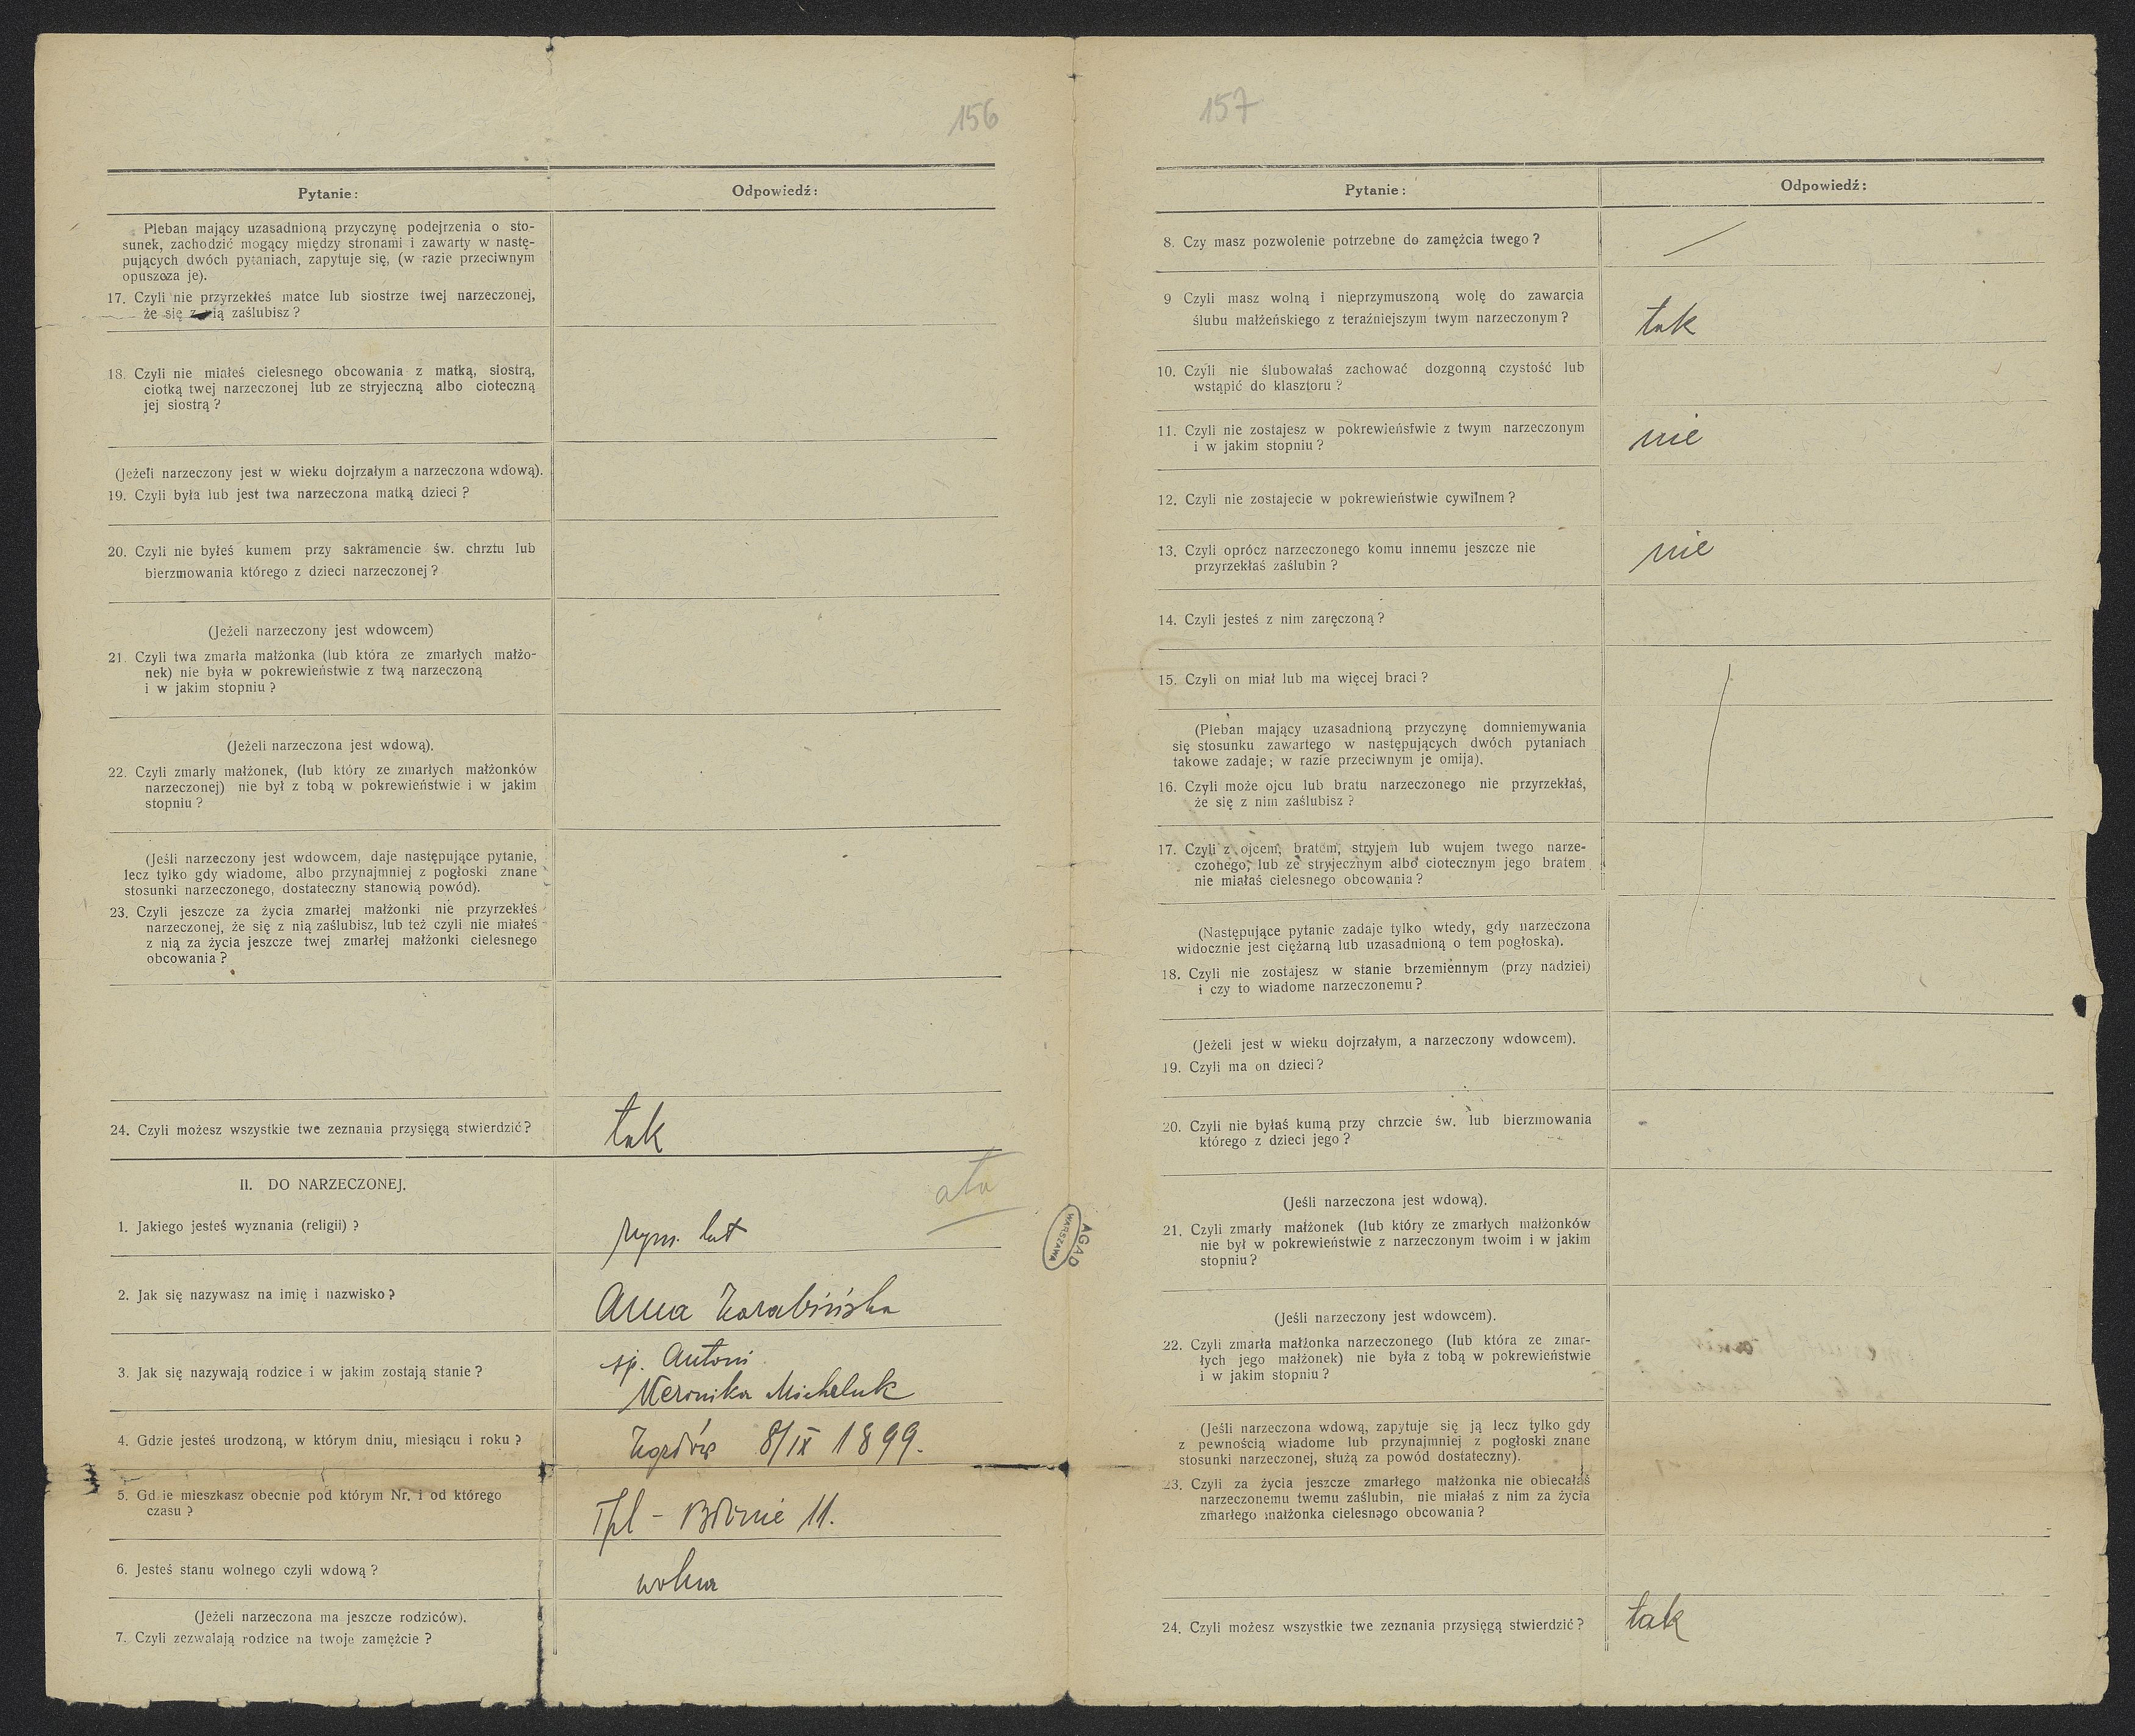 156
Pytanie:
Odpowiedź:
Pleban mający uzasadnioną przyczynę podejrzenia o sto-
sunek, zachodzić mogący między stronami i zawarty w nastę-
pujących dwóch pytaniach, zapytuje się, (w razie przeciwnym
opuszcza je).
17. Czyli nie przyrzekłeś matce lub siostrze twej narzeczonej,
że się z nią zaślubisz?
18. Czyli nie miałeś cielesnego obcowania z matką, siostrą,
ciotką twej narzeczonej lub ze stryjeczną albo cioteczną
jej siostrą?
(Jeżeli narzeczony jest w wieku dojrzałym a narzeczona wdową).
19. Czyli była lub jest twa narzeczona matką dzieci?
20. Czyli nie byłeś kumem przy sakramencie św. chrztu lub
bierzmowania którego z dzieci narzeczonej?
(Jeżeli narzeczony jest wdowcem)
21. Czyli twa zmarła małżonka (lub która ze zmarłych małżo-
nek) nie była w pokrewieństwie z twą narzeczoną
i w jakim stopniu?
(Jeżeli narzeczona jest wdową).
22. Czyli zmarly małżonek, (lub który ze zmarłych małżonków
narzeczonej) nie był z tobą w pokrewieństwie i w jakim
stopniu?
(Jeśli narzeczony jest wdowcem, daje następujące pytanie,
lecz tylko gdy wiadome, albo przynajmniej z pogłoski znane
stosunki narzeczonego, dostateczny stanowią powód).
23. Czyli jeszcze za życia zmarłej małżonki nie przyrzekłeś
narzeczonej, że się z nią zaślubisz, lub też czyli nie miałeś
z nią za życia jeszcze twej zmarłej małżonki cielesnego
obcowania?
24. Czyli możesz wszystkie twe zeznania przysięgą stwierdzić?
tak
II. DO NARZECZONEJ.
1. Jakiego jesteś wyznania (religii)?
rzym. kat
2. Jak się nazywasz na imię i nazwisko?
Anna
3. Jak się nazywają rodzice i w jakim zostają stanie?
śp. Antoni
Weronika Michaluk
4. Gdzie jesteś urodzoną, w którym dniu, miesiącu i roku?
8/IX 1899.
5. Gd ie mieszkasz obecnie pod którym Nr. i od którego
czasu?
Tpl - 11.
6. Jesteś stanu wolnego czyli wdową?
wolna
(Jeżeli narzeczona ma jeszcze rodziców).
7. Czyli zezwalają rodzice na twoje zamężcie?
AGAD
WARSZAWA
157
Pytanie:
Odpowiedź:
8. Czy masz pozwolenie potrzebne do zamężcia twego?
9 Czyli masz wolną i nieprzymuszoną wolę do zawarcia
ślubu małżeńskiego z teraźniejszym twym narzeczonym?
tak
10. Czyli nie ślubowałaś zachować dozgonną czystość lub
wstąpić do klasztoru?
11. Czyli nie zostajesz w pokrewieńsfwie z twym narzeczonym
i w jakim stopniu?
nie
12. Czyli nie zostajecie w pokrewieństwie cywilnem?
13. Czyli oprócz narzeczonego komu innemu jeszcze nie
przyrzekłaś zaślubin?
nie
14. Czyli jesteś z nim zaręczoną?
15. Czyli on miał lub ma więcej braci?
(Pleban mający uzasadnioną przyczynę domniemywania
się stosunku zawartego w następujących dwóch pytaniach
takowe zadaje; w razie przeciwnym je omija).
16. Czyli może ojcu lub bratu narzeczonego nie przyrzekłaś,
że się z nim zaślubisz?
17. Czyli z ojcem, bratem, stryjem lub wujem twego narze-
czonego, lub ze stryjecznym albo ciotecznym jego bratem
nie miałaś cielesnego obcowania?
(Następujące pytanie zadaje tylko wtedy, gdy narzeczona
widocznie jest ciężarną lub uzasadnioną o tem pogłoska).
18. Czyli nie zostajesz w stanie brzemiennym (przy nadziei)
i czy to wiadome narzeczonemu?
(Jeżeli jest w wieku dojrzałym, a narzeczony wdowcem).
19. Czyli ma on dzieci?
20. Czyli nie byłaś kumą przy chrzcie św. lub bierzmowania
którego z dzieci jego?
(Jeśli narzeczona jest wdową).
21. Czyli zmarły małżonek (lub który ze zmarłych małżonków
nie był w pokrewieństwie z narzeczonym twoim i w jakim
stopniu?
(Jeśli narzeczony jest wdowcem).
22. Czyli zmarła małżonka narzeczonego (lub która ze zmar-
łych jego małżonek) nie była z tobą w pokrewieństwie
i w jakim stopniu?
(Jeśli narzeczona wdową, zapytuje się ją lecz tylko gdy
z pewnością wiadome lub przynajmniej z pogłoski znane
stosunki narzeczonej, służą za powód dostateczny).
23. Czyli za życia jeszcze zmarłego małżonka nie obiecałaś
narzeczonemu twemu zaślubin, nie miałaś z nim za życia
zmarłego małżonka cielesnego obcowania?
24. Czyli możesz wszystkie twe zeznania przysięgą stwierdzić?
tak